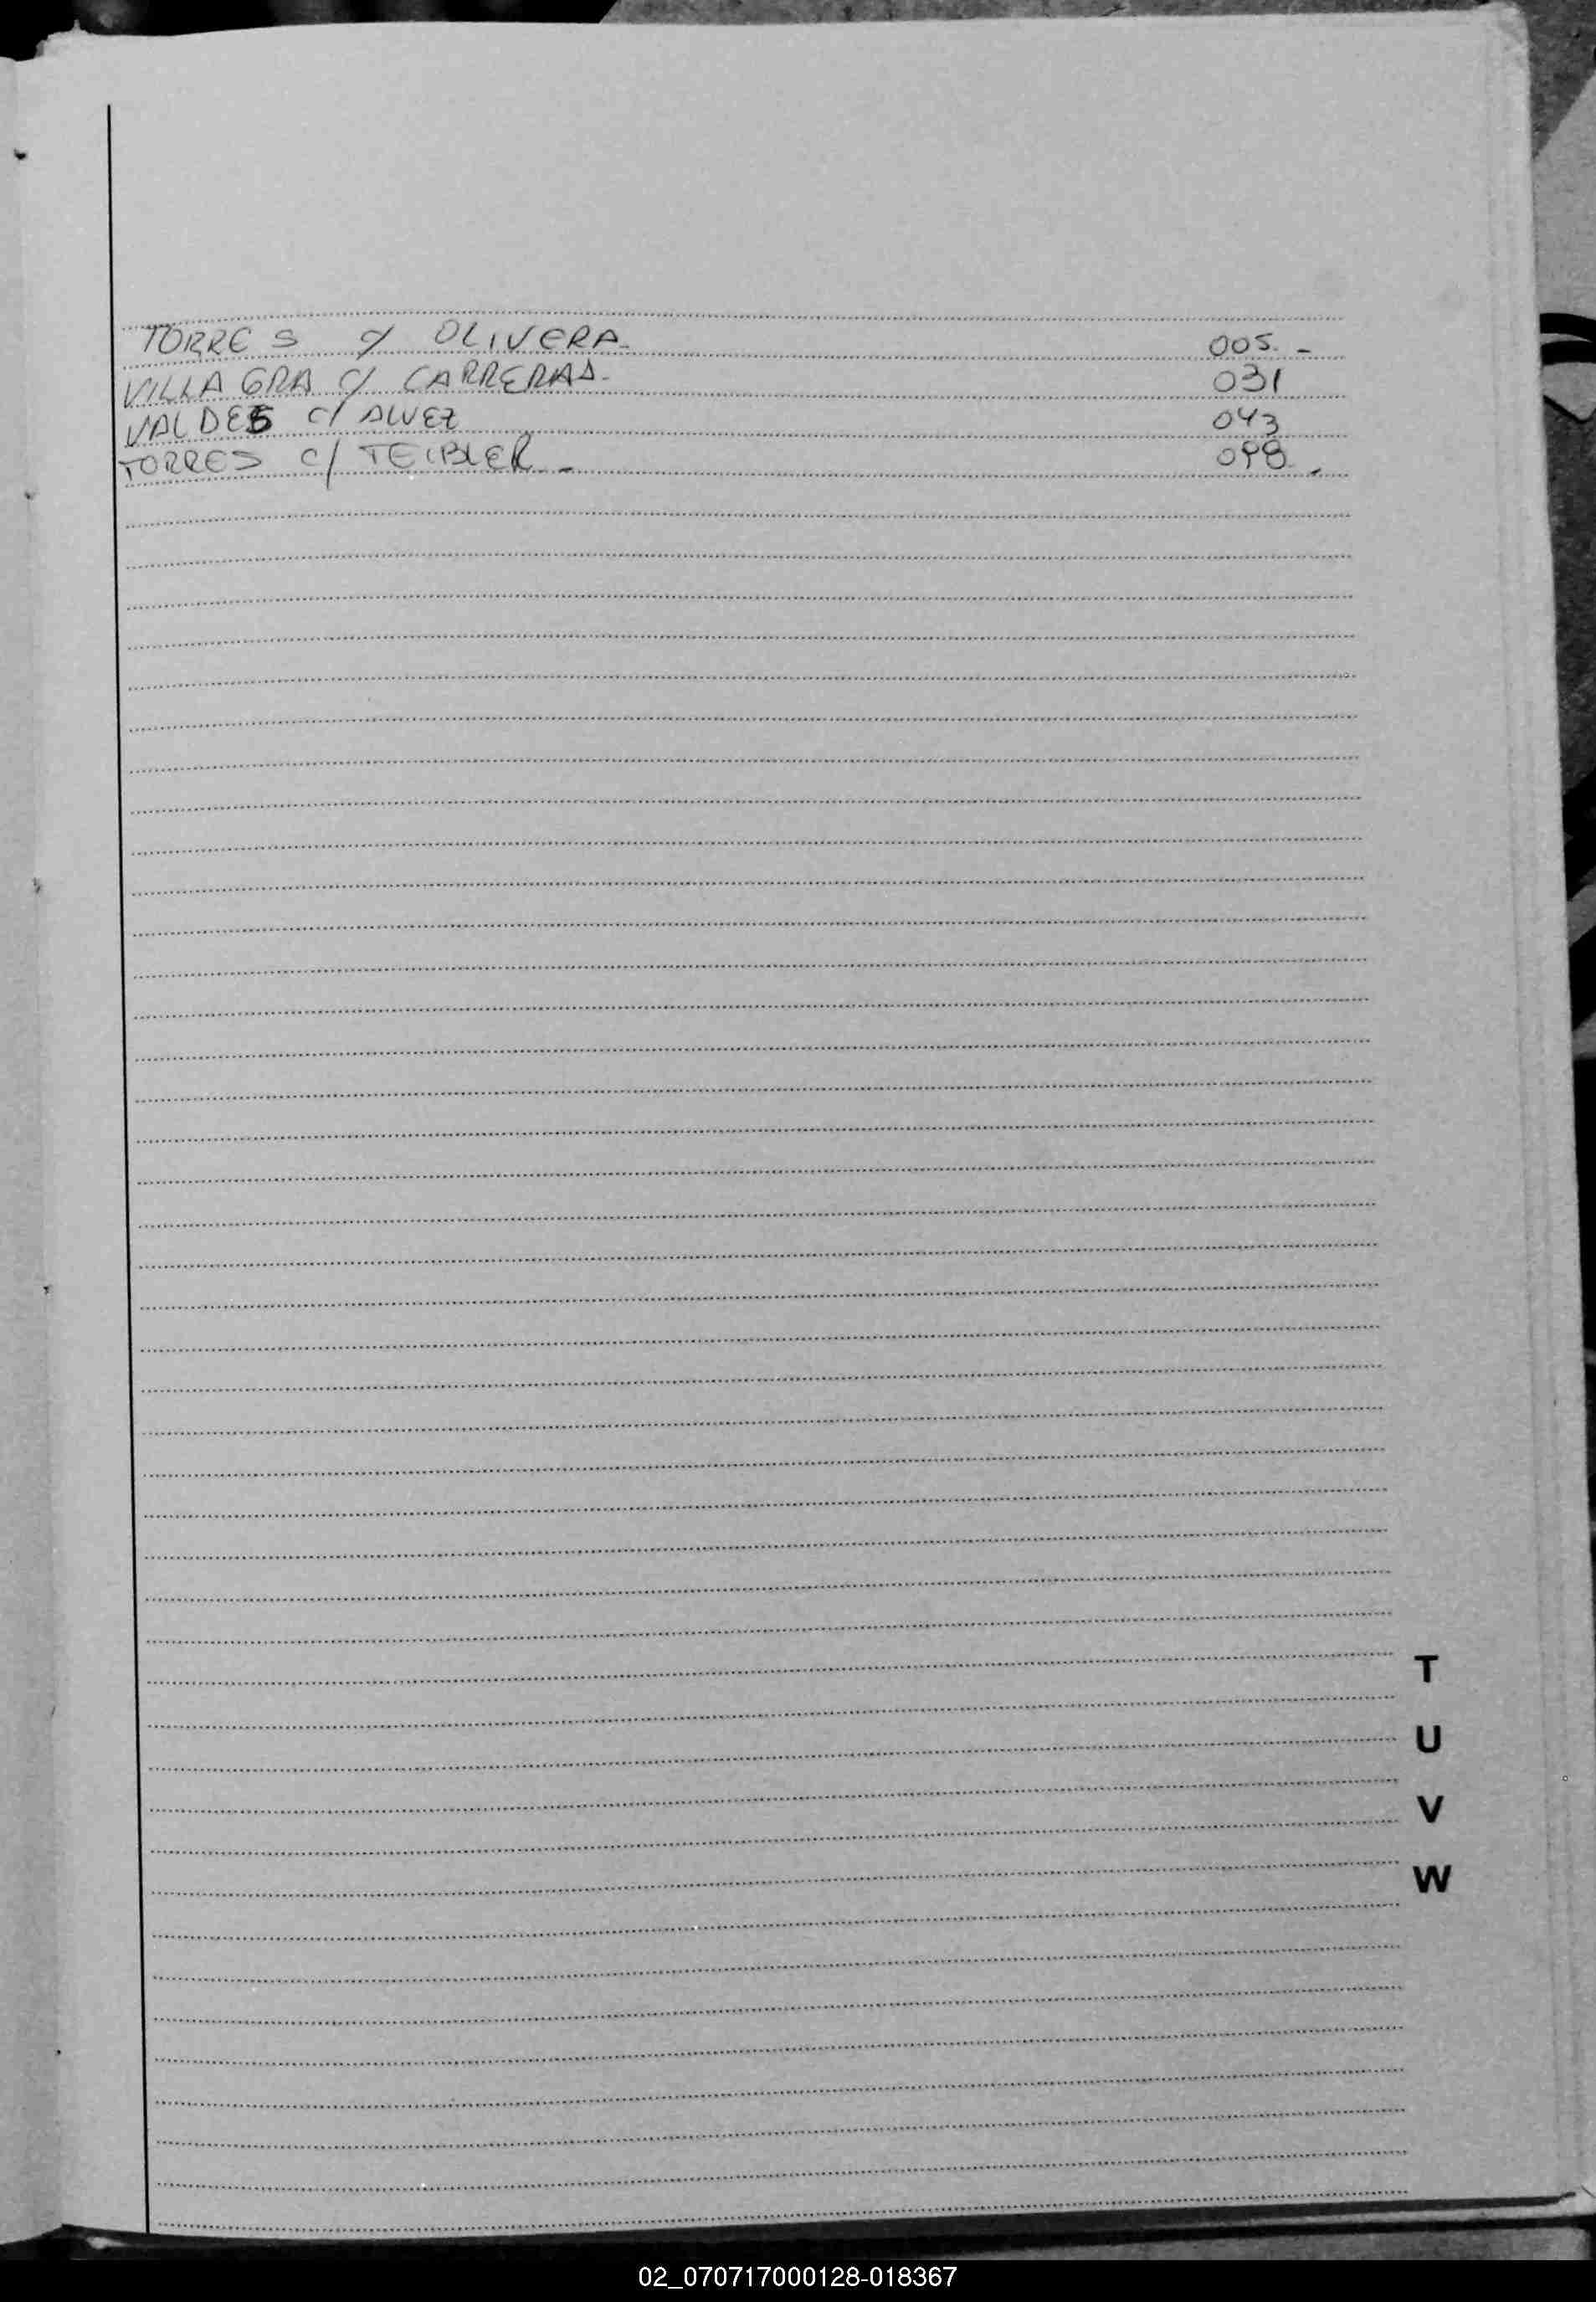 TORRES c/ OLIVERA- 005.-
VILLAGRA c/ CARRERAS- 031
VALDES c/ ALVEZ 043
TORRES c/ TEIBLER.-
T
U
V
W
02_070717000128-018367